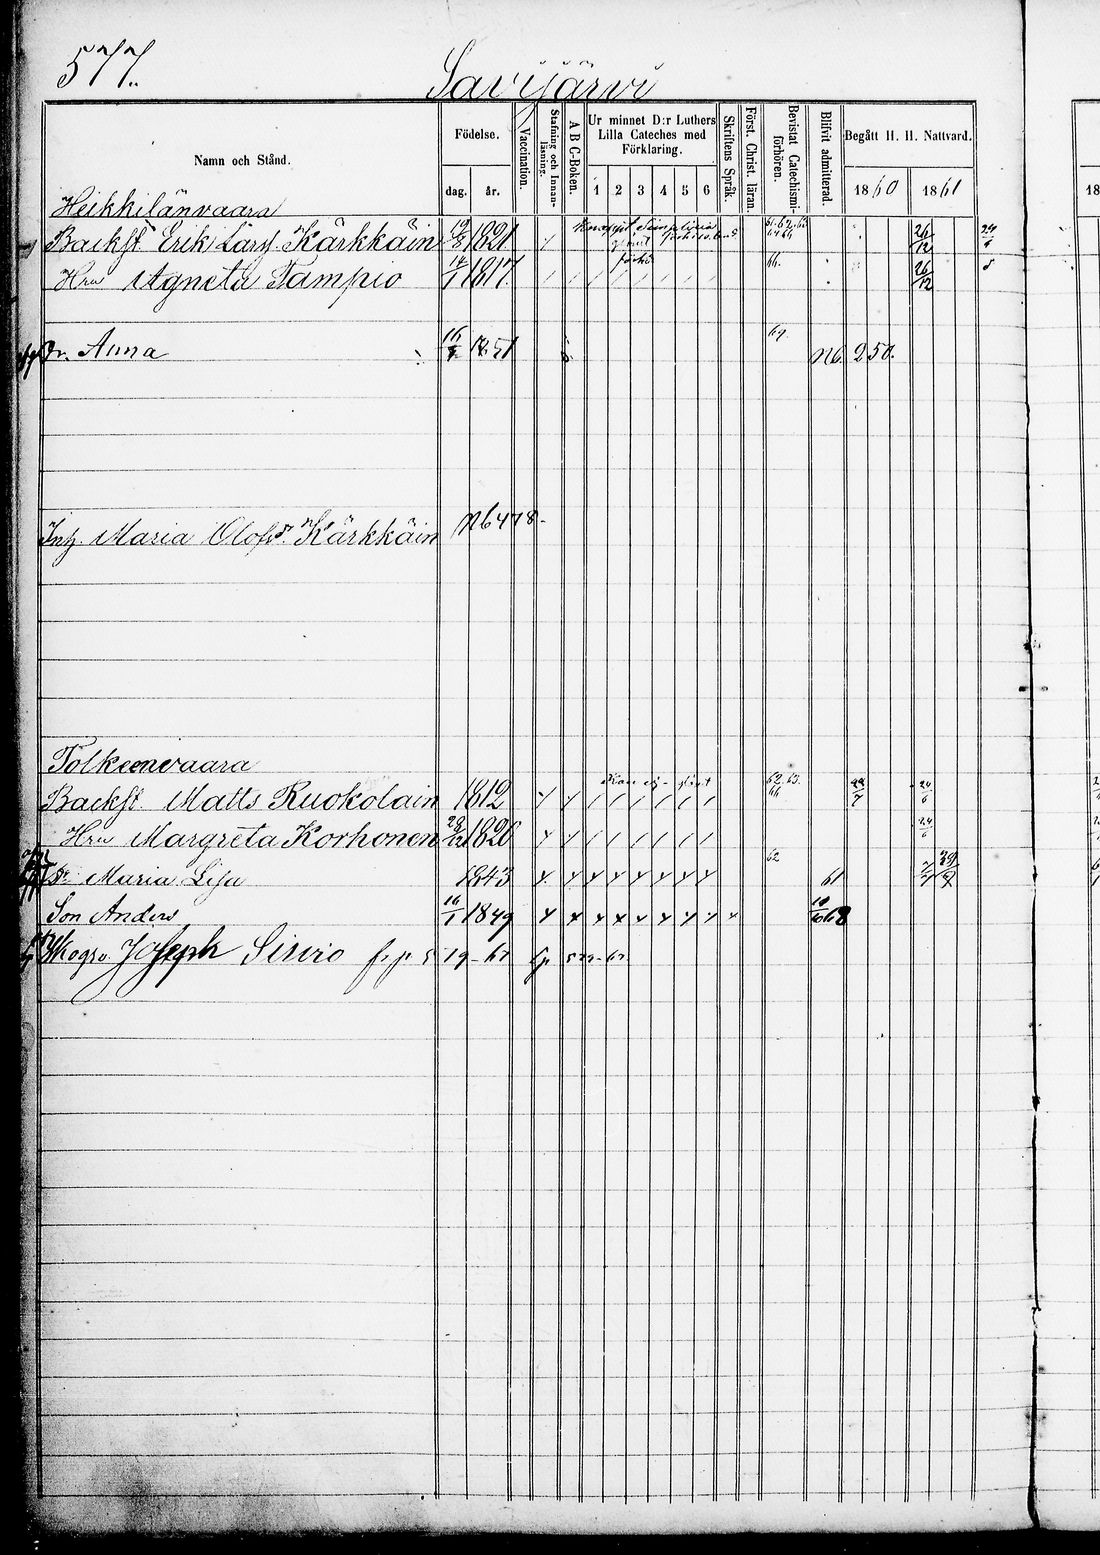 577.
Savijärvi
Namn och Stånd.
Födelse.
dag. år.
Vaccination.
Stafning och Innanläsning.
A B C-Boken.
Ur minnet D:r Luthers Lilla Cateches med Förklaring.
1 2 3 4 5 6
Skriftens Språk.
Först. Christ. läran.
Bevistat Catechismiförhören.
Blifvit admitterad.
Begått H. H. Nattvard.
1860 1861
Heikkilänvaara
Backst. Erik Larss. Kärkkäin 1821 26/12 24/6
Hru Agneta Tampio 14/1 1817. 66. 26/12
Dr. Anna 16 1851 69. N6 250.
Inh. Maria Olofsdr. Kärkkäin N6 478-
Tolkeenvaara
Backst. Matts Ruokolain 1812 62. 63. 66 24/6
Hru Margreta Korhonen 1826 24/6
Dr. Maria Lisa 1843 62 61
Son Anders 16/1 1849 68
Skogsv. Joseph Sirvio fr. p 519-67